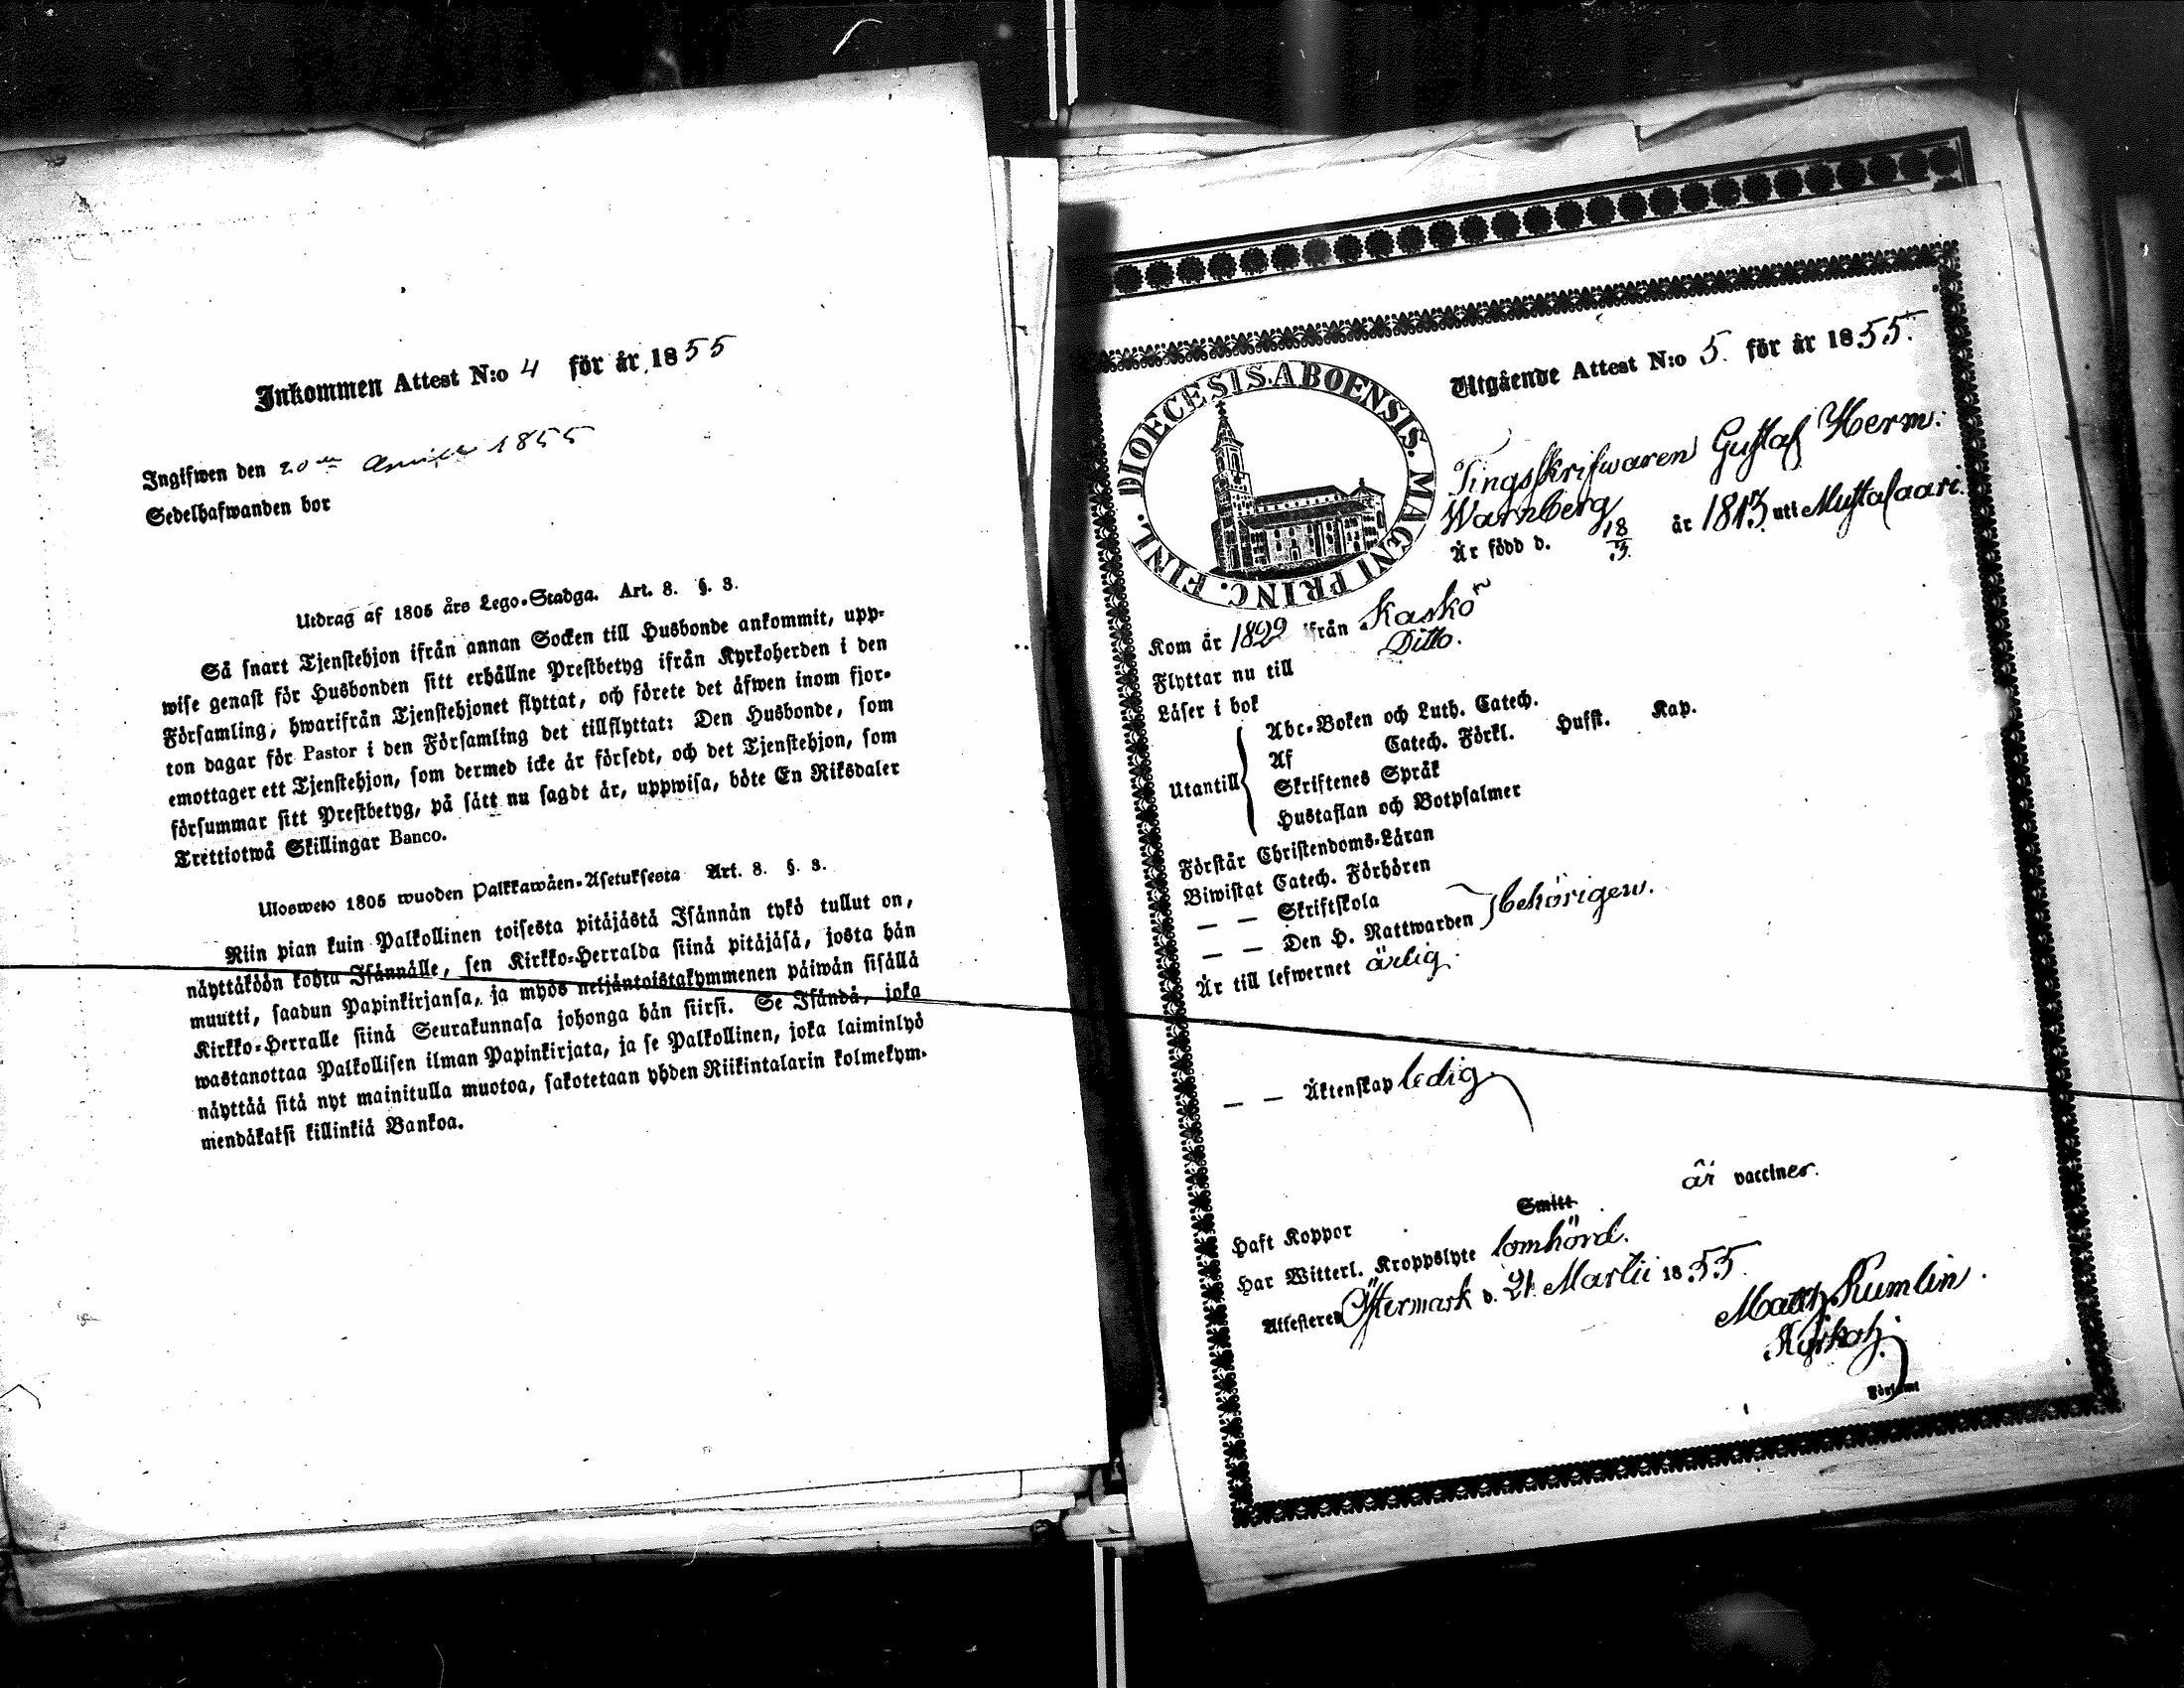 Inkommen Attest N:o 4 för år 1855
Ingifwen den 20de Aprill 1855
Sedelhafwanden bor
Utdrag af 1805 års Lego-Stadga. Art. 8. §. 3.
Så snart Tjenstehjon ifrån annan Socken till Husbonde ankommit, upp-
wise genast för Husbonden sitt erhållne Prestbetyg ifrån Kyrkoherden i den
Församling, hwarifrån Tjenstehjonet flyttat, och förete det äfwen inom fjor-
ton dagar för Pastor i den Församling det tillflyttat: Den Husbonde, som
emottager ett Tjenstehjon, som dermed icke är försedt, och det Tjenstehjon, som
försummar sitt Prestbetyg, på sätt nu sagdt är, uppwisa, böte En Riksdaler
Trettiotwå Skillingar Banco.
Ulosweto 1805 wuoden Palkkawäen-Asetuksesta Art. 8. §. 3.
Niin pian kuin Palkollinen toisesta pitäjästä Isännän tykö tullut on,
näyttäköön kohta Isännälle, sen Kirkko-Herralda siinä pitäjäsä, josta hän
muutti, saadun Papinkirjansa, ja myös neljäntoistakymmenen päiwän sisällä
Kirkko-Herralle siinä Seurakunnasa johonga hän siirsi. Se Isändä, joka
wastanottaa Palkollisen ilman Papinkirjata, ja se Palkollinen, joka laiminlyö
näyttää sitä nyt mainitulla muotoa, sakotetaan yhden Riikintalarin kolmekym-
mendäkatsi killinkiä Bankoa.
DIOECESIS ABOENSIS. MAGNI PRINC. FINL.
Utgående Attest N:o 5. för år 1855.
Tingsskrifwaren Gustaf Herm:
Warnberg
Är född d. 18/3. år 1813 uti Mustasaari.
Kom år 1822 ifrån Kaskö
Flyttar nu till Ditto.
Läser i bok
Utantill
Abc-Boken och Luth. Catech.
Af Catech. Förkl. Hufst. Kap.
Skriftenes Språk
Hustaflan och Botpsalmer
Förstår Christendoms-Läran
Biwistat Catech. Förhören
— — Skriftskola
— — Den H. Nattwarden behörigen.
Är till lefwernet ärlig.
— — Äktenskap ledig
Haft Koppor Smitt är vacciner.
Har Witterl. Kroppslyte lomhörd.
Attesteres Östermark d. 21 Martii 1855.
Matth. Kumlin.
Kyrkoh.